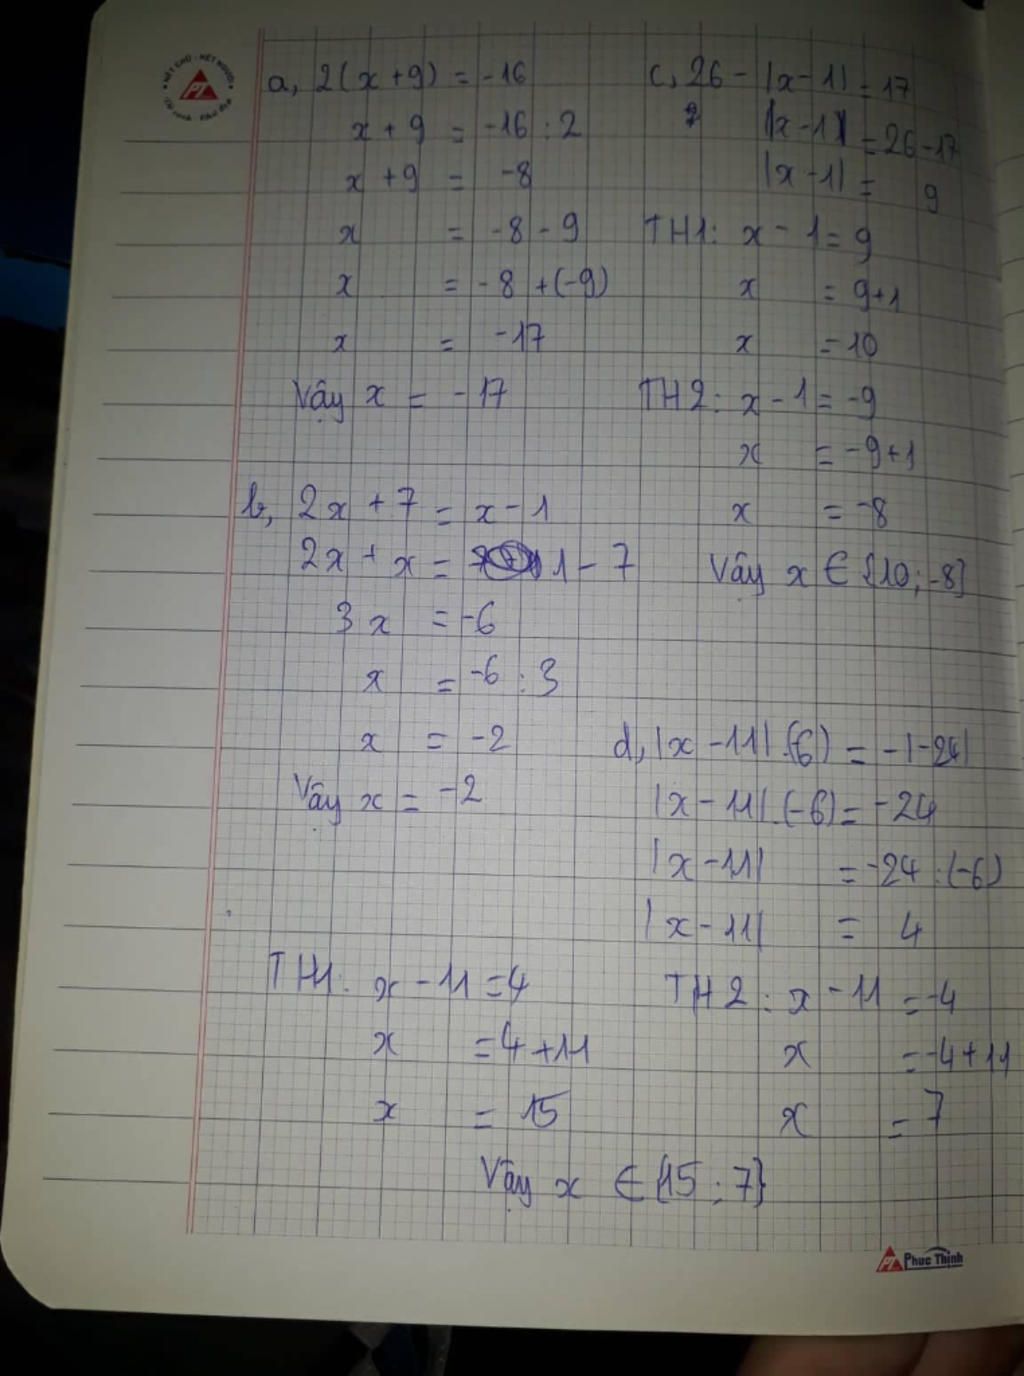 NÉT CHỮ - NẾT NGƯỜI
PT
a, 2(x+9) = -16
x + 9 = -16 : 2
x + 9 = -8
x = -8 - 9
x = -8 + (-9)
x = -17
Vậy x = -17
b, 2x + 7 = x - 1
2x + x = 1 - 7
3x = -6
x = -6 : 3
x = -2
Vậy x = -2
c, 26 - |x - 1| = 17
|x - 1| = 26 - 17
|x - 1| = 9
TH1: x - 1 = 9
x = 9+1
x = 10
TH2: x - 1 = -9
x = -9+1
x = -8
Vậy x ∈ {10; -8}
d, |x - 11| .(-6) = -|-24|
|x - 11| .(-6) = -24
|x - 11| = -24 : (-6)
|x - 11| = 4
TH1: x - 11 = 4
x = 4 + 11
x = 15
TH2: x - 11 = -4
x = -4 + 11
x = 7
Vậy x ∈ {15; 7}
PT Phuc Thinh